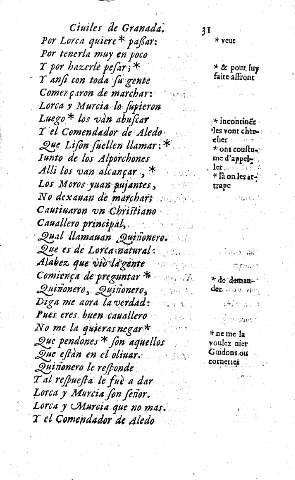 Ciuiles de Granada. 31
Por Lorca quiere * paßar: * veut
Por tenerla muy en poco
Y por hazerle pesar; * * & pour luy
faite affront
Y ansi con toda su gente
Començaron de marchar:
Lorca y Murcia lo supieron
Luego * los vàn abuscar * incontinẽt
les vont cher-
cher
Y el Comendador de Aledo
Que Lison suelen llamar: * * ont coustu-
me d'appel-
ler
Iunto de los Alporchones
Alli los van alcançar, * * là on les at-
trape
Los Moros yuan pujantes,
No dexauan de marchar;
Cautiuaron vn Christiano
Cauallero principal,
Qual llamauan Quiñonero.
Que es de Lorca natural:
Alabez que vio la gente
Comiença de preguntar * * de deman-
der
Quiñonero, Quiñonero,
Diga me aora la verdad:
Pues eres buen cauallero
No me la quieras negar * * ne me la
voulez nier
Que pendones * son aquellos Guidons ou
cornettes
Que estàn en el oliuar.
Quiñonero le responde
Tal respuesta le fuè a dar
Lorca y Murcia son señor.
Lorca y Murcia que no mas.
Y el Comendador de Aledo